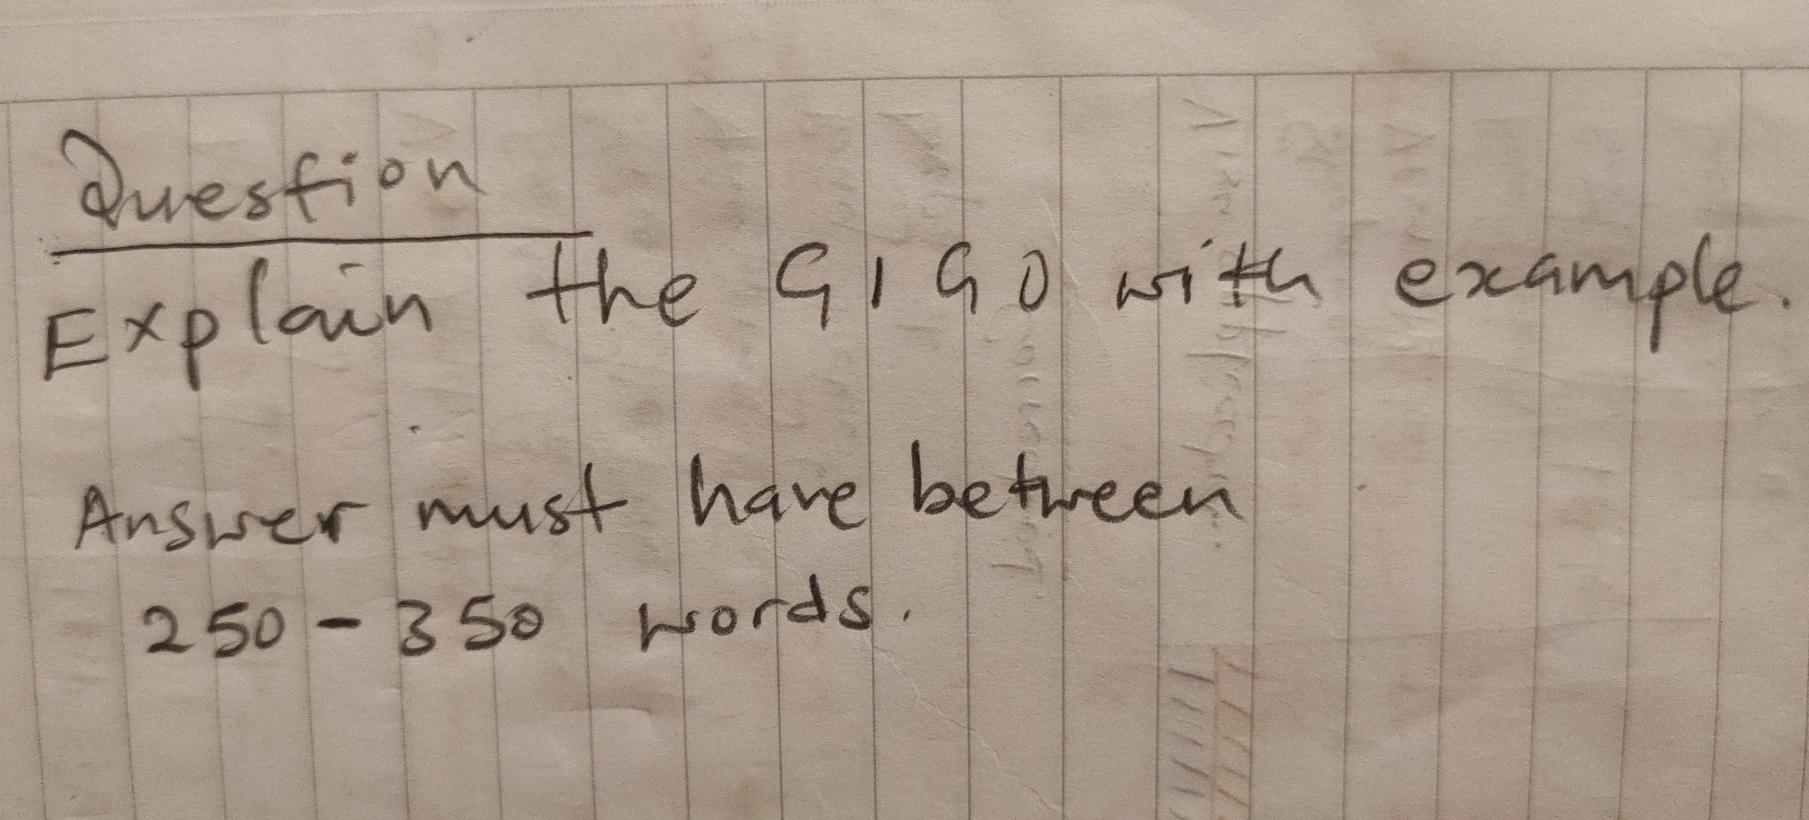 Question
Explain the GIGO with example.
Answer must have between
250 - 350 words.